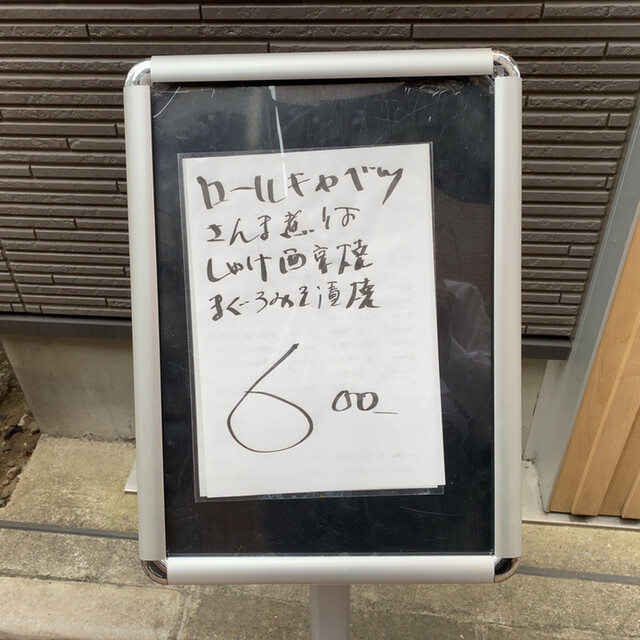 ロールキャベツ
さんま煮付
しゃけ西京焼
まぐろみそ漬焼
600